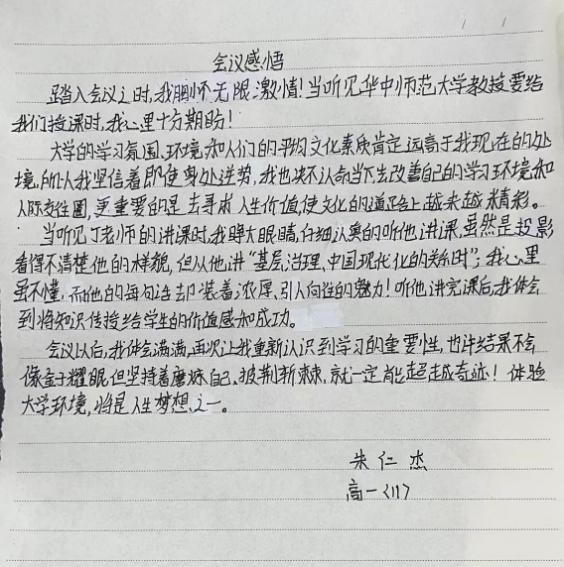 会议感悟
踏入会议之时,我胸怀无限激情!当听见华中师范大学教授要给
我们授课时,我心里十方期盼!
大学的学习氛围、环境和人们的平均文化素质肯定远高于我现在的处
境,所以我坚信着即使身处逆势,我也决不认命当下,去改善自己的学习环境和
人际交往圈,更重要的是去寻求人生价值,使文化的道路上越来越精彩。
当听见丁老师的讲课时,我睁大眼睛,仔细认真的听他讲课,虽然是投影
看得不清楚他的样貌,但从他讲“基层治理,中国现代化的关系时”,我心里
虽不懂,而他的每句话却装着浓厚、引人向往的魅力!听他讲完课后,我体会
到将知识传授给学生的价值感和成功。
会议以后,我体会满满,再次让我重新认识到学习的重要性,也许结果不会
像金子耀眼,但坚持着磨炼自己、披荆斩棘,就一定能超越奇迹!体验
大学环境,将是人生梦想之一。
朱仁杰
高一<11>